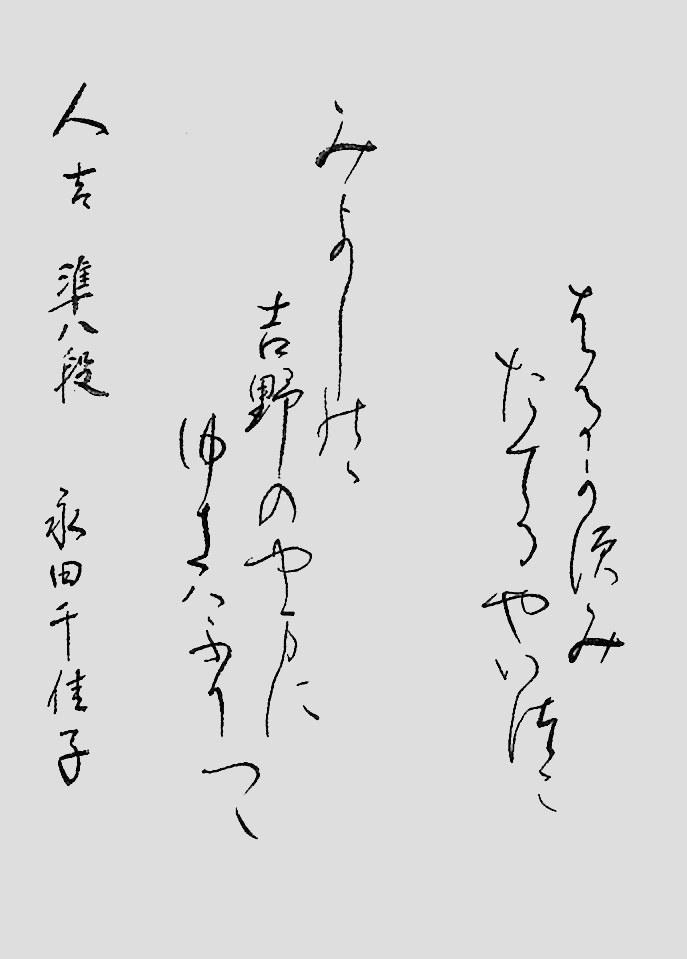 はるかすみ
たてるやいつこ
みよしのゝ
吉野のやまに
ゆきはふりつゝ
人吉 準八段 永田千佳子